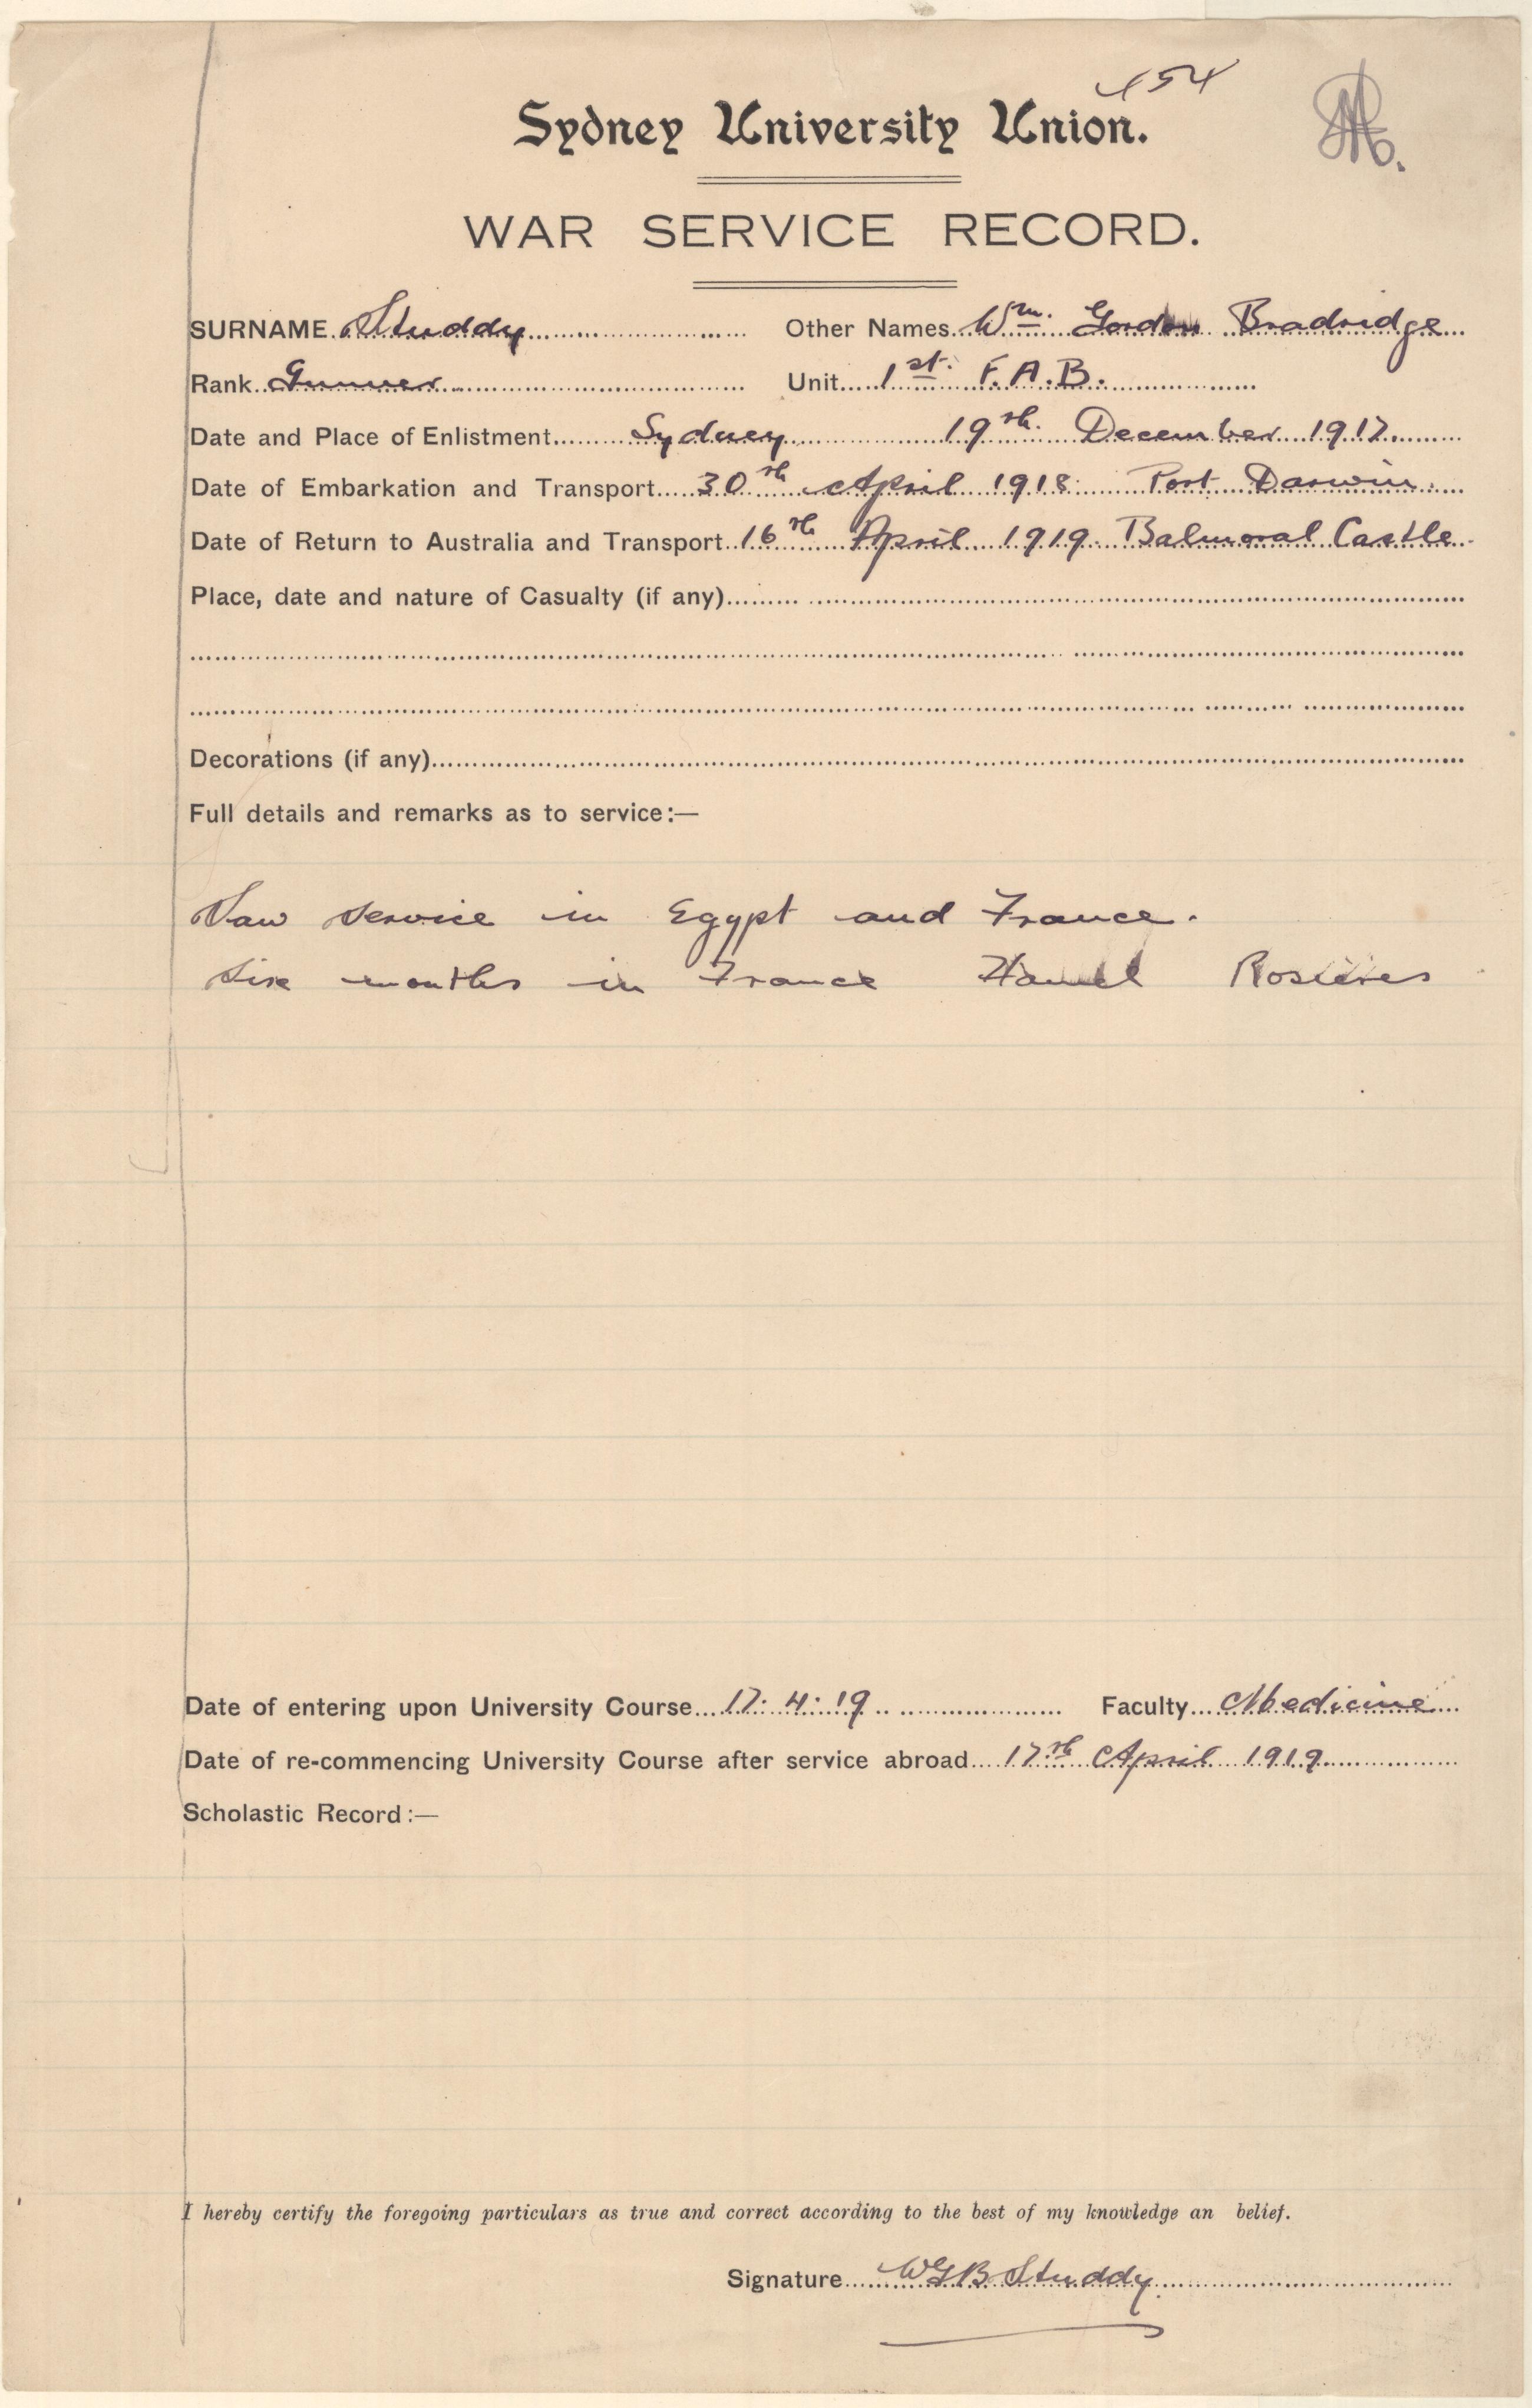 154
Sydney University Union.
WAR SERVICE RECORD.
SURNAME. Studdy Other Names. Wm. Gordon Bradridge
Rank. Gunner Unit. 1st. F.A.B.
Date and Place of Enlistment Sydney 19th. December 1917.
Date of Embarkation and Transport 30th April 1918. Port Darwin.
Date of Return to Australia and Transport 16th April 1919. Balmoral Castle
Place, date and nature of Casualty (if any)
Decorations (if any)
Full details and remarks as to service:—
Saw service in Egypt and France.
Six months in France Hamel Rosières
Date of entering upon University Course 17.4.19 Faculty Medicine
Date of re-commencing University Course after service abroad 17th April 1919
Scholastic Record:—
I hereby certify the foregoing particulars as true and correct according to the best of my knowledge an belief.
Signature WGB Studdy